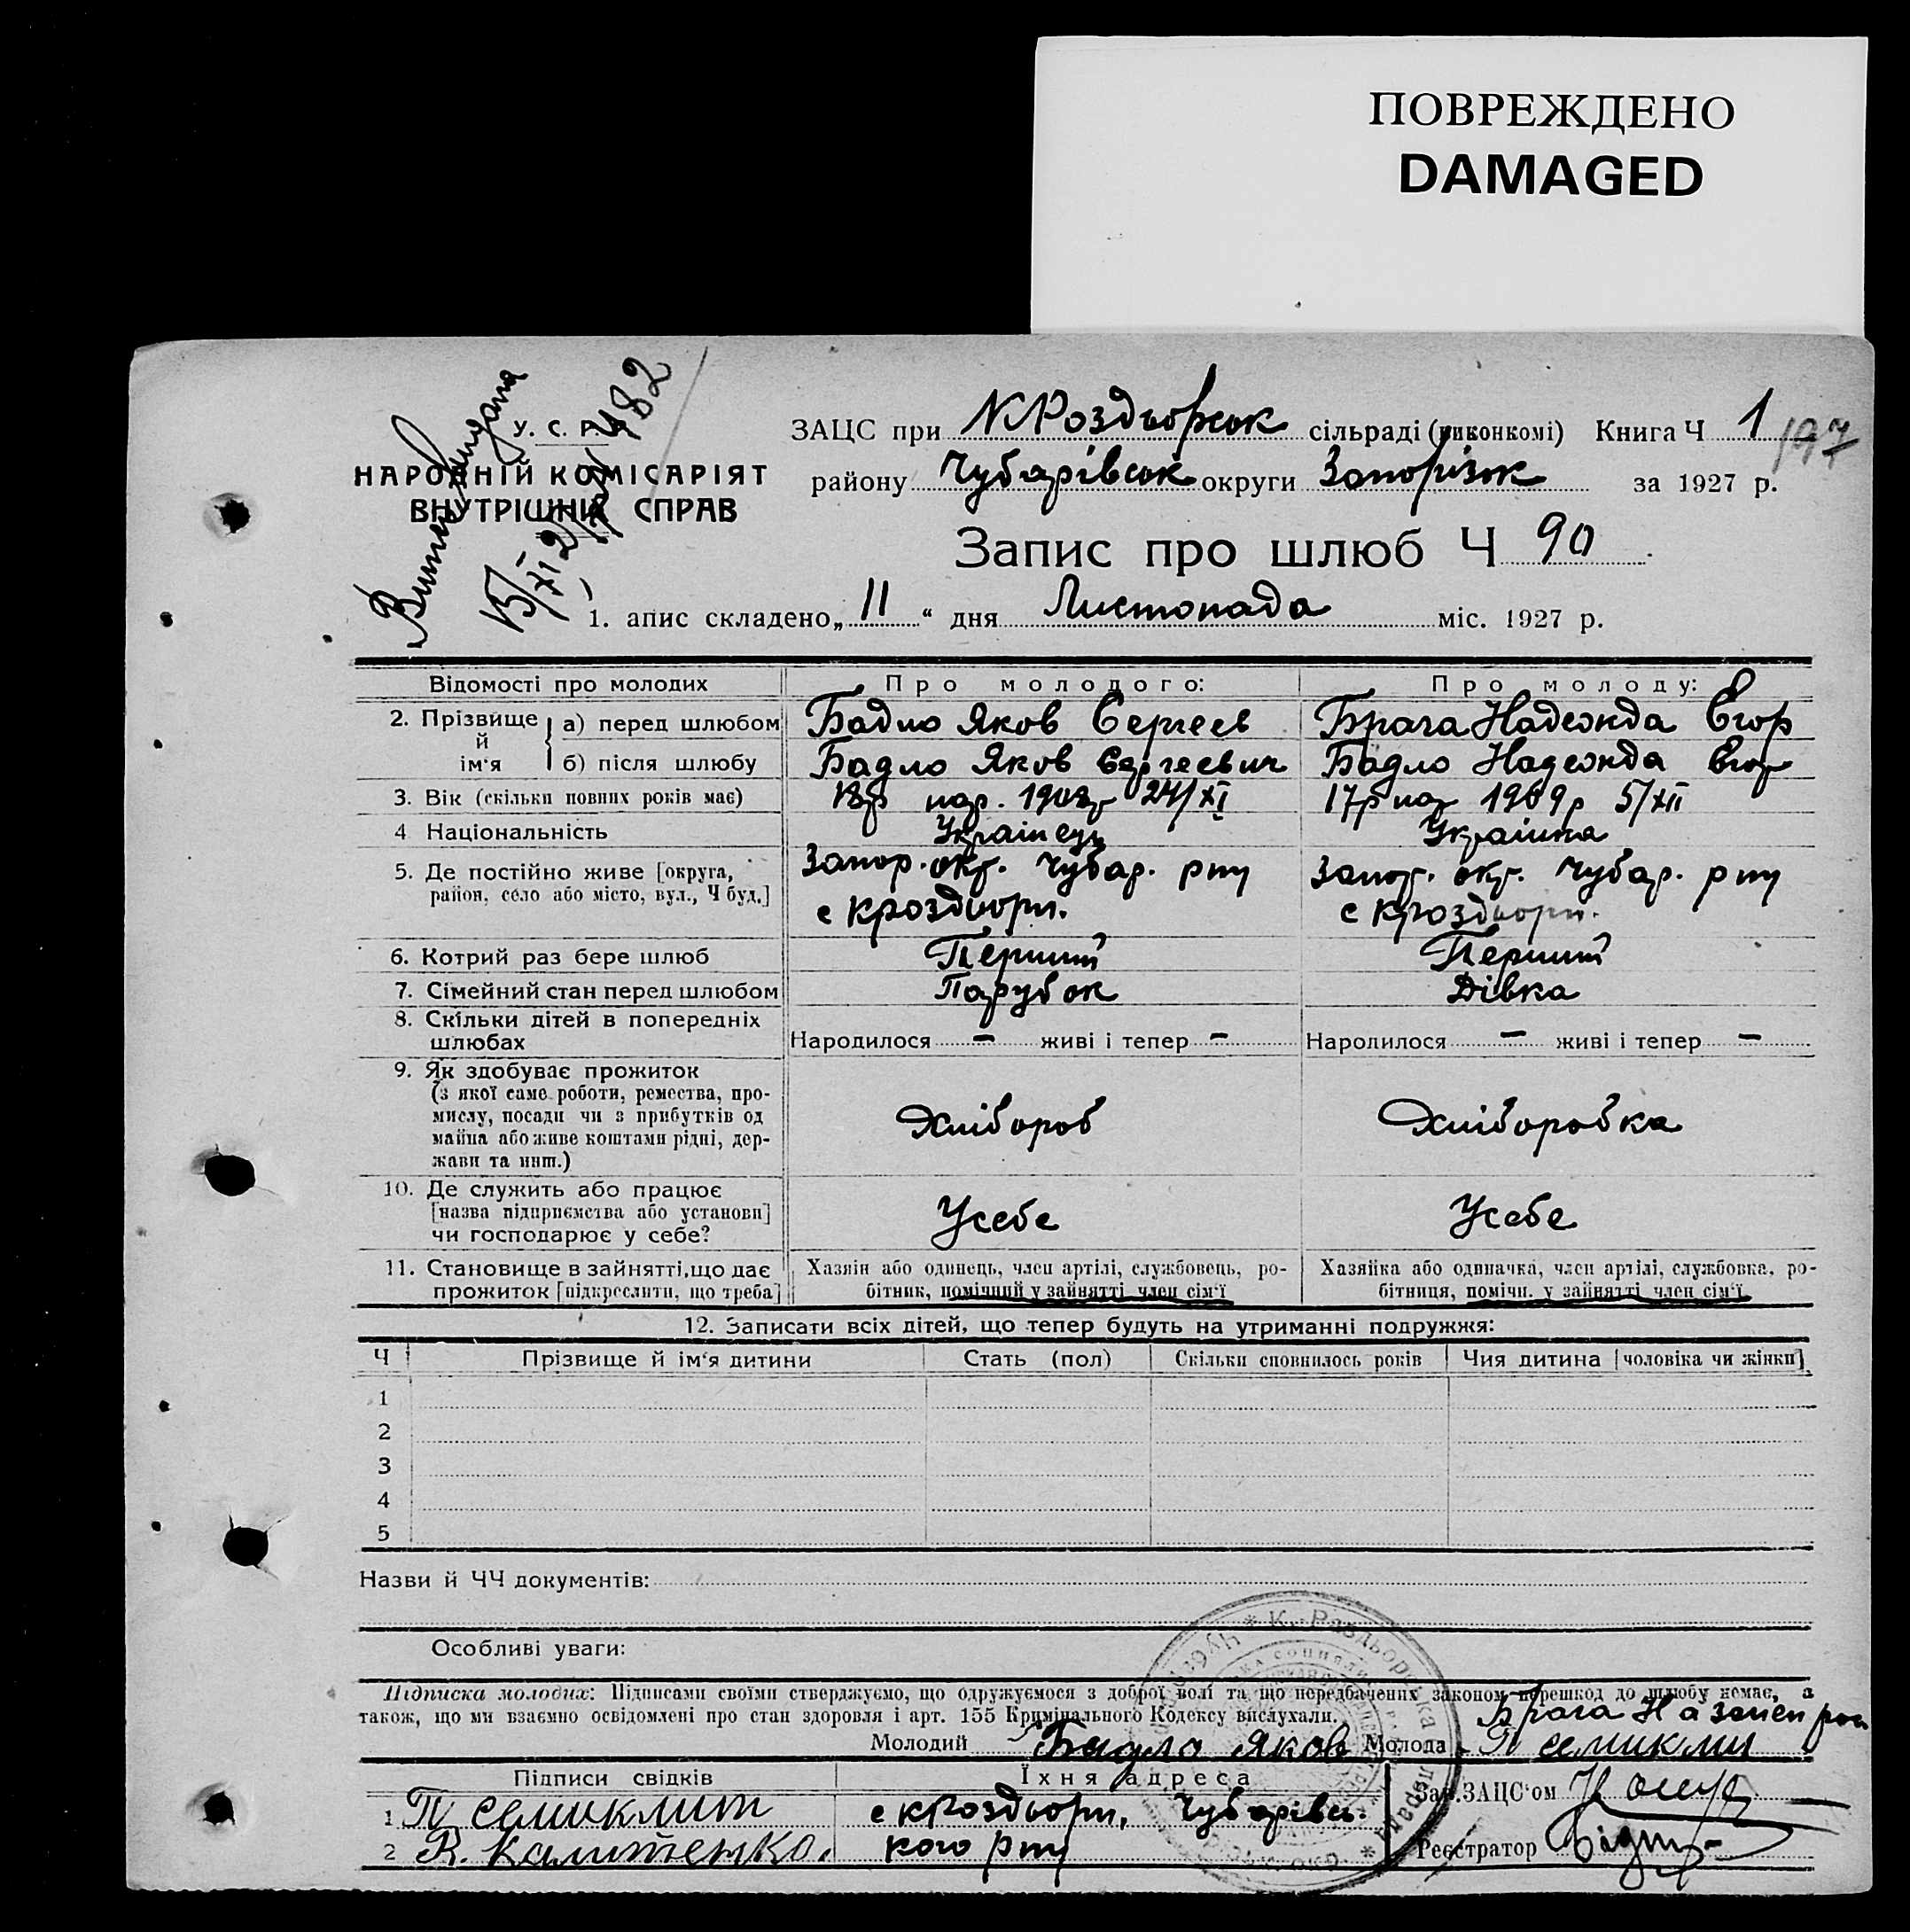 ПОВРЕЖДЕНО
DAMAGED
У. С. Р. Р.
НАРОДНІЙ КОМІСАРІЯТ
ВНУТРІШНІХ СПРАВ
482
ЗАЦС при К Роздьорськ сільраді (виконкомі) Книга Ч 1
197
району Чубарівськ округи Запорізьк за 1927 р.
Запис про шлюб Ч 90
1. апис складено „ 11 “ дня Листопада міс. 1927 р.
Відомості про молодих Про молодого: Про молоду:
2. Прізвище й ім‘я а) перед шлюбом Бадло Яков Сергеев Брага Надежда Егор
б) після шлюбу Бадло Яков Сергеевич Бадло Надежда Егор
3. Вік (скільки повних років має) 18р нар. 1908р 24/XI 17р нар 1909р 5/XII
4 Національність Украінець Украінка
5. Де постійно живе [округа, район, село або місто, вул., Ч буд.] Запор. окр. Чубар. рну Запор. окр. Чубар. рну
с КРоздьорн. с КРоздьорн.
6. Котрий раз бере шлюб Перший Перший
7. Сімейний стан перед шлюбом Парубок Дівка
8. Скільки дітей в попередніх шлюбах Народилося – живі і тепер – Народилося – живі і тепер –
9. Як здобуває прожиток
(з якої саме роботи, ремества, про-
мислу, посади чи з прибутків од
майна або живе коштами рідні, дер-
жави та инш.) Хлібороб Хліборобка
10. Де служить або працює
[назва підприємства або установи]
чи господарює у себе? Усебе Усебе
11. Становище в зайнятті, що дає прожиток [підкреслити, що треба] Хазяїн або одинець, член артілі, службовець, ро-
бітник, помічний у зайнятті член сім‘ї
Хазяїка або одиначка, член артілі, службовка, ро-
бітниця, помічн. у зайнятті член сім‘ї
12. Записати всіх дітей, що тепер будуть на утриманні подружжя:
Ч Прізвище й ім‘я дитини Стать (пол) Скільки сповнилось років Чия дитина [чоловіка чи жінки]
1
2
3
4
5
Назви й ЧЧ документів:
Особливі уваги:
Підписка молодих: Підписами своїми стверджуємо, що одружуємося з доброї волі та що передбачених законом перешкод до шлюбу немає, а
також, що ми взаємно освідомлені про стан здоровля і арт. 155 Кримінального Кодексу вислухали.
Брага
Молодий Бадло Яков Молода П семиклит
Підписи свідків Їхня адреса Зав. ЗАЦС‘ом
1 П семиклит с кРоздьорн, Чубарівсь-
2 Калитенко. кого рну Реєстратор